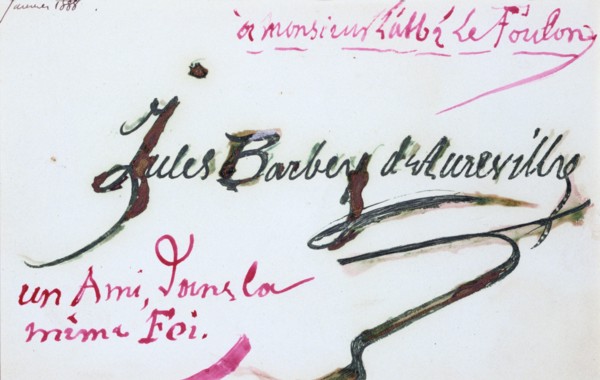 1888
à monsieur L'abbé Le Foulon
Jules Barbey d'Aurevilly
un Ami, dans la
même Foi.